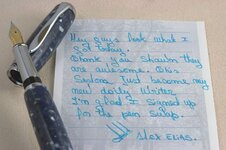 Hey guys look what I
got today.
Thank you Shawn they
are awesome. This
just become my
new daily writer
I'm glad I signed up
for the pen swap.
Alex Elias.